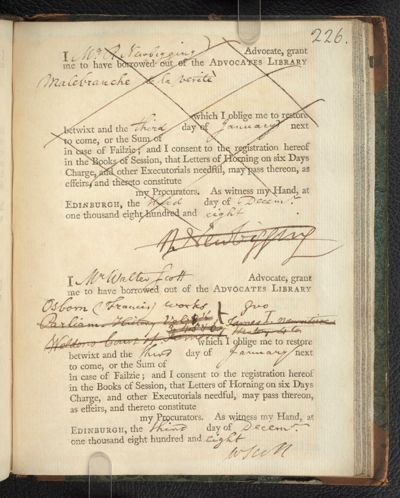 226.
I Mr R Newbigging Advocate, grant
me to have borrowed out of the ADVOCATES LIBRARY
Malebranche de la verité
which I oblige me to restore
betwixt and the third day of January next
to come, or the Sum of
in case of Failzie; and I consent to the registration hereof
in the Books of Session, that Letters of Horning on six Days
Charge, and other Executorials needful, may pass thereon, as
effeirs, and thereto constitute
my Procurators. As witness my Hand, at
EDINBURGH, the third day of Decemr.
one thousand eight hundred and eight
R Newbigging
I Mr Walter Scott Advocate, grant
me to have borrowed out of the ADVOCATES LIBRARY
Osborn (Francis) works 8vo
Parliam. History James I.
Weldons Court of
which I oblige me to restore
betwixt and the third day of January next
to come, or the Sum of
in case of Failzie; and I consent to the registration hereof
in the Books of Session, that Letters of Horning on six Days
Charge, and other Executorials needful, may pass thereon,
as effeirs, and thereto constitute
my Procurators. As witness my Hand, at
EDINBURGH, the third day of Decemr.
one thousand eight hundred and eight
W Scott